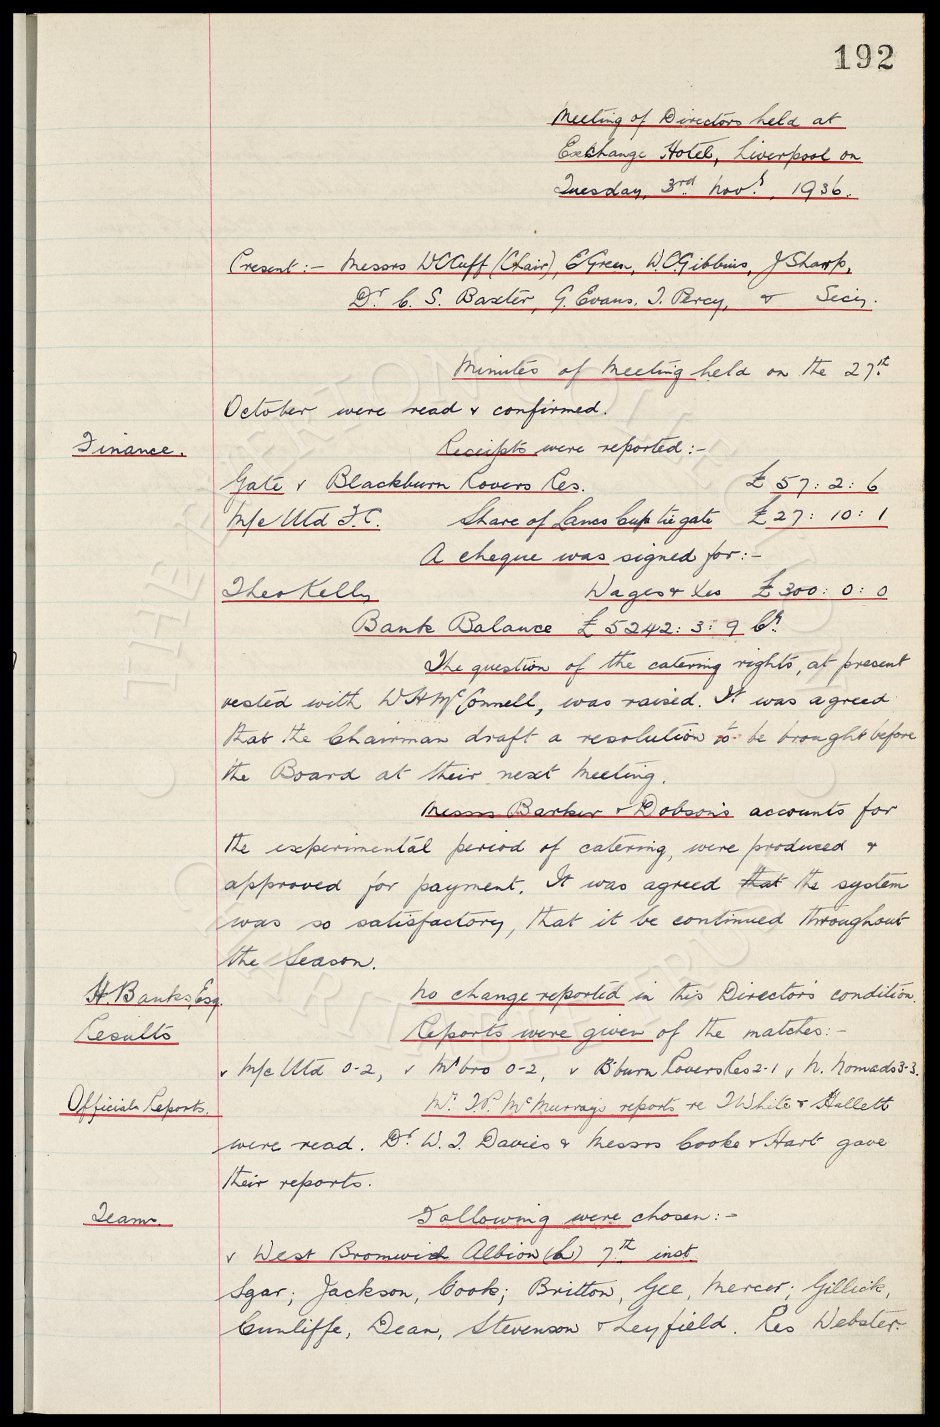 192
Meeting of Directors held at
Exchange Hotel, Liverpool on
Tuesday, 3rd Novr, 1936.
Present:- Messrs W C Cuff (Chair), E Green, W.C. Gibbins, J Sharp,
Dr C. S. Baxter, G. Evans, T. Percy, & Secy.
Minutes of Meeting held on the 27th
October were read & confirmed.
Finance. Receipts were reported:-
Gate v Blackburn Rovers Res. £57: 2: 6
M/c Utd F.C. Share of Lancs Cup tie gate £27: 10: 1
A cheque was signed for:-
Theo Kelly Wages & Xes £300: 0: 0
Bank Balance £5242: 3: 9 Cr.
The question of the catering rights, at present
vested with W H McConnell, was raised. It was agreed
that the Chairman draft a resolution to be brought before
the Board at their next Meeting.
Messrs Barker & Dobson's accounts for
the experimental period of catering, were produced &
approved for payment. It was agreed that the system
was so satisfactory, that it be continued throughout
the Season.
H Banks, Esq. No change reported in this Director's condition.
Results Reports were given of the matches:-
v M/c Utd 0-2, v M'bro 0-2, v B'burn Rovers Res 2-1 v N. Nomads 3-3.
Officials Reports. Mr. T.P. McMurray's reports re T White & Hallett
were read. Dr. W. T. Davies & Messrs Cooke & Hart gave
their reports.
Teams. Following were chosen:-
v West Bromwich Albion (h) 7th inst
Sgar; Jackson, Cook; Britton, Gee, Mercer; Gillick,
Cunliffe, Dean, Stevenson & Leyfield. Res Webster.
THE EVERTON COLLECTION
CHARITABLE TRUST